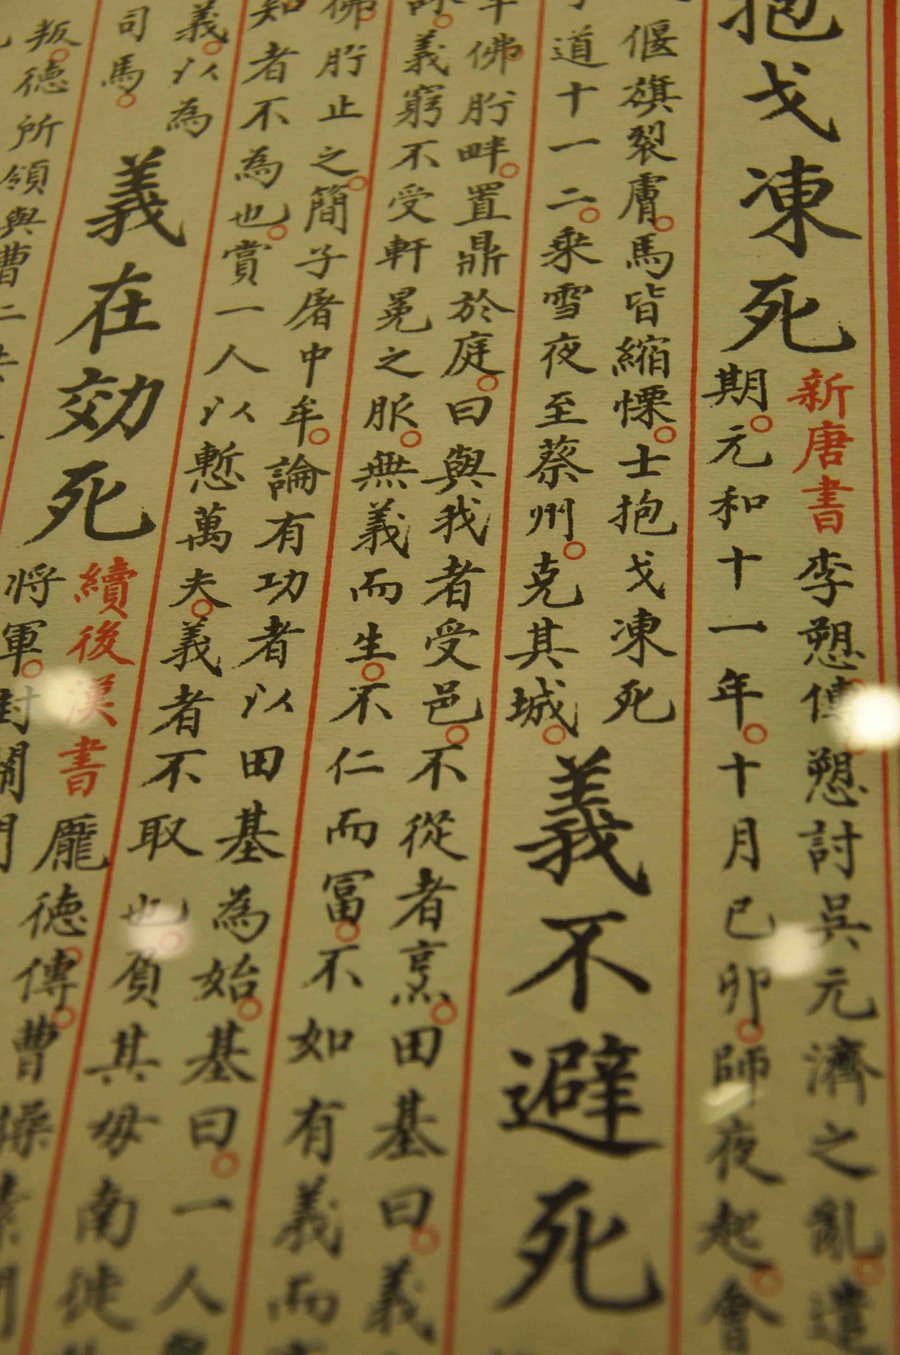 抱戈凍死
新唐書李愬傳愬討吳元濟之亂遣
期元和十一年十月已卯師夜起會
偃旗裂膚馬皆縮慄士抱戈凍死
道十一二乘雪夜至蔡州克其城
義不避死
佛肸畔置鼎於庭曰與我者受邑不從者烹田基曰義
義窮不受軒冕之服無義而生不仁而富不如有義而
佛肸止之簡子屠中牟論有功者以田基為始基曰一人
知者不為也賞一人以慙萬夫義者不取也負其母南徙
義以為
司馬
義在効死
續後漢書龐德傳曹操素
將軍封
叛德所領與曹二